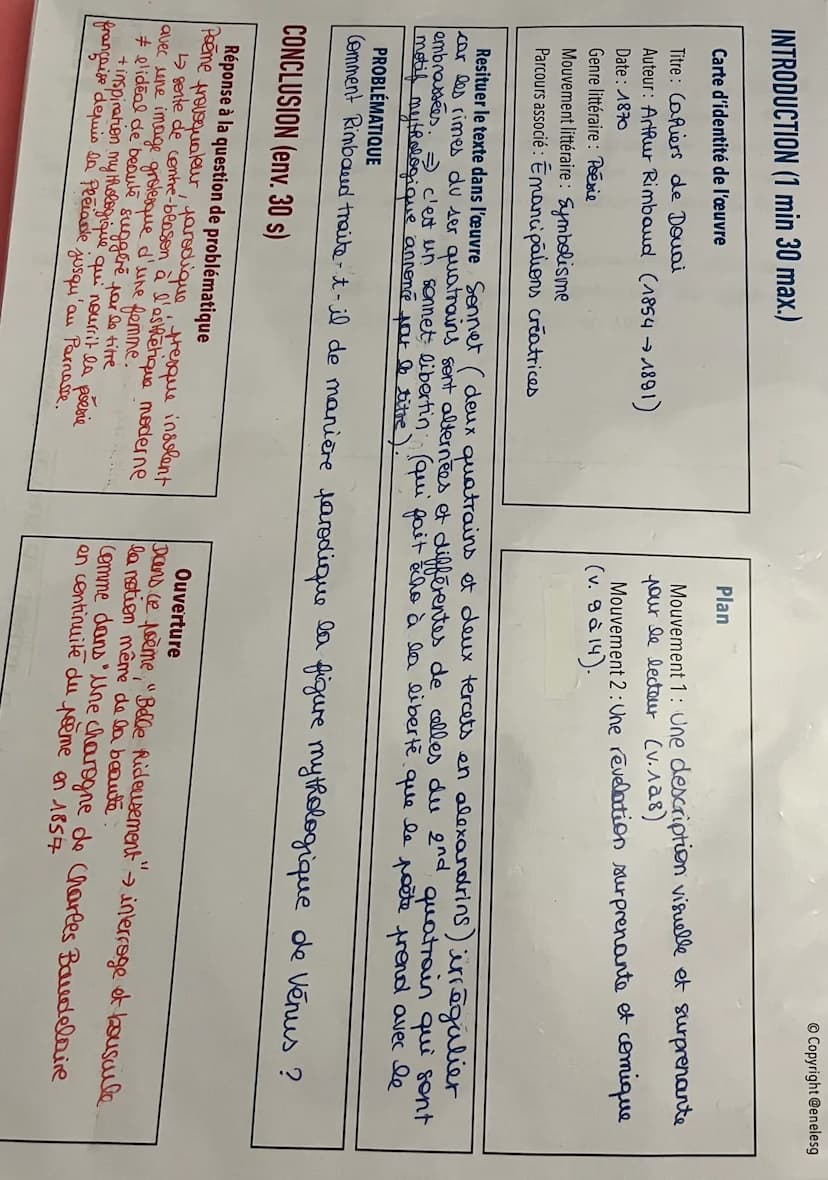 © Copyright @enelesg
INTRODUCTION (1 min 30 max.)
Carte d'identité de l'œuvre
Titre : Cahiers de Douai
Auteur : Arthur Rimbaud (1854 → 1891)
Date : 1870
Genre littéraire : Poésie
Mouvement littéraire : Symbolisme
Parcours associé : Émancipations créatrices
Plan
Mouvement 1 : Une description visuelle et surprenante
pour le lecteur (v. 1 à 8)
Mouvement 2 : Une révélation surprenante et comique
(v. 9 à 14).
Resituer le texte dans l'œuvre Sonnet (deux quatrains et deux tercets en alexandrins) irrégulier
car les rimes du 1er quatrains sont alternées et différentes de celles du 2nd quatrain qui sont
embrassées. => c'est un sonnet libertin (qui fait écho à la liberté que le poète prend avec le
motif mythologique annoncé par le titre).
PROBLÉMATIQUE
Comment Rimbaud traite-t-il de manière parodique la figure mythologique de Vénus ?
CONCLUSION (env. 30 s)
Réponse à la question de problématique
Poème provocateur, parodique, presque insolent
↳ sorte de contre-blason à l'esthétique moderne
avec une image grotesque d'une femme.
≠ l'idéal de beauté suggéré par le titre
+ inspiration mythologique qui nourrit la poésie
française depuis la Pléiade jusqu'au Parnasse.
Ouverture
Dans ce poème, "Belle hideusement" → interroge et bouscule
la notion même de la beauté.
Comme dans "Une charogne de Charles Baudelaire
en continuité du poème en 1857